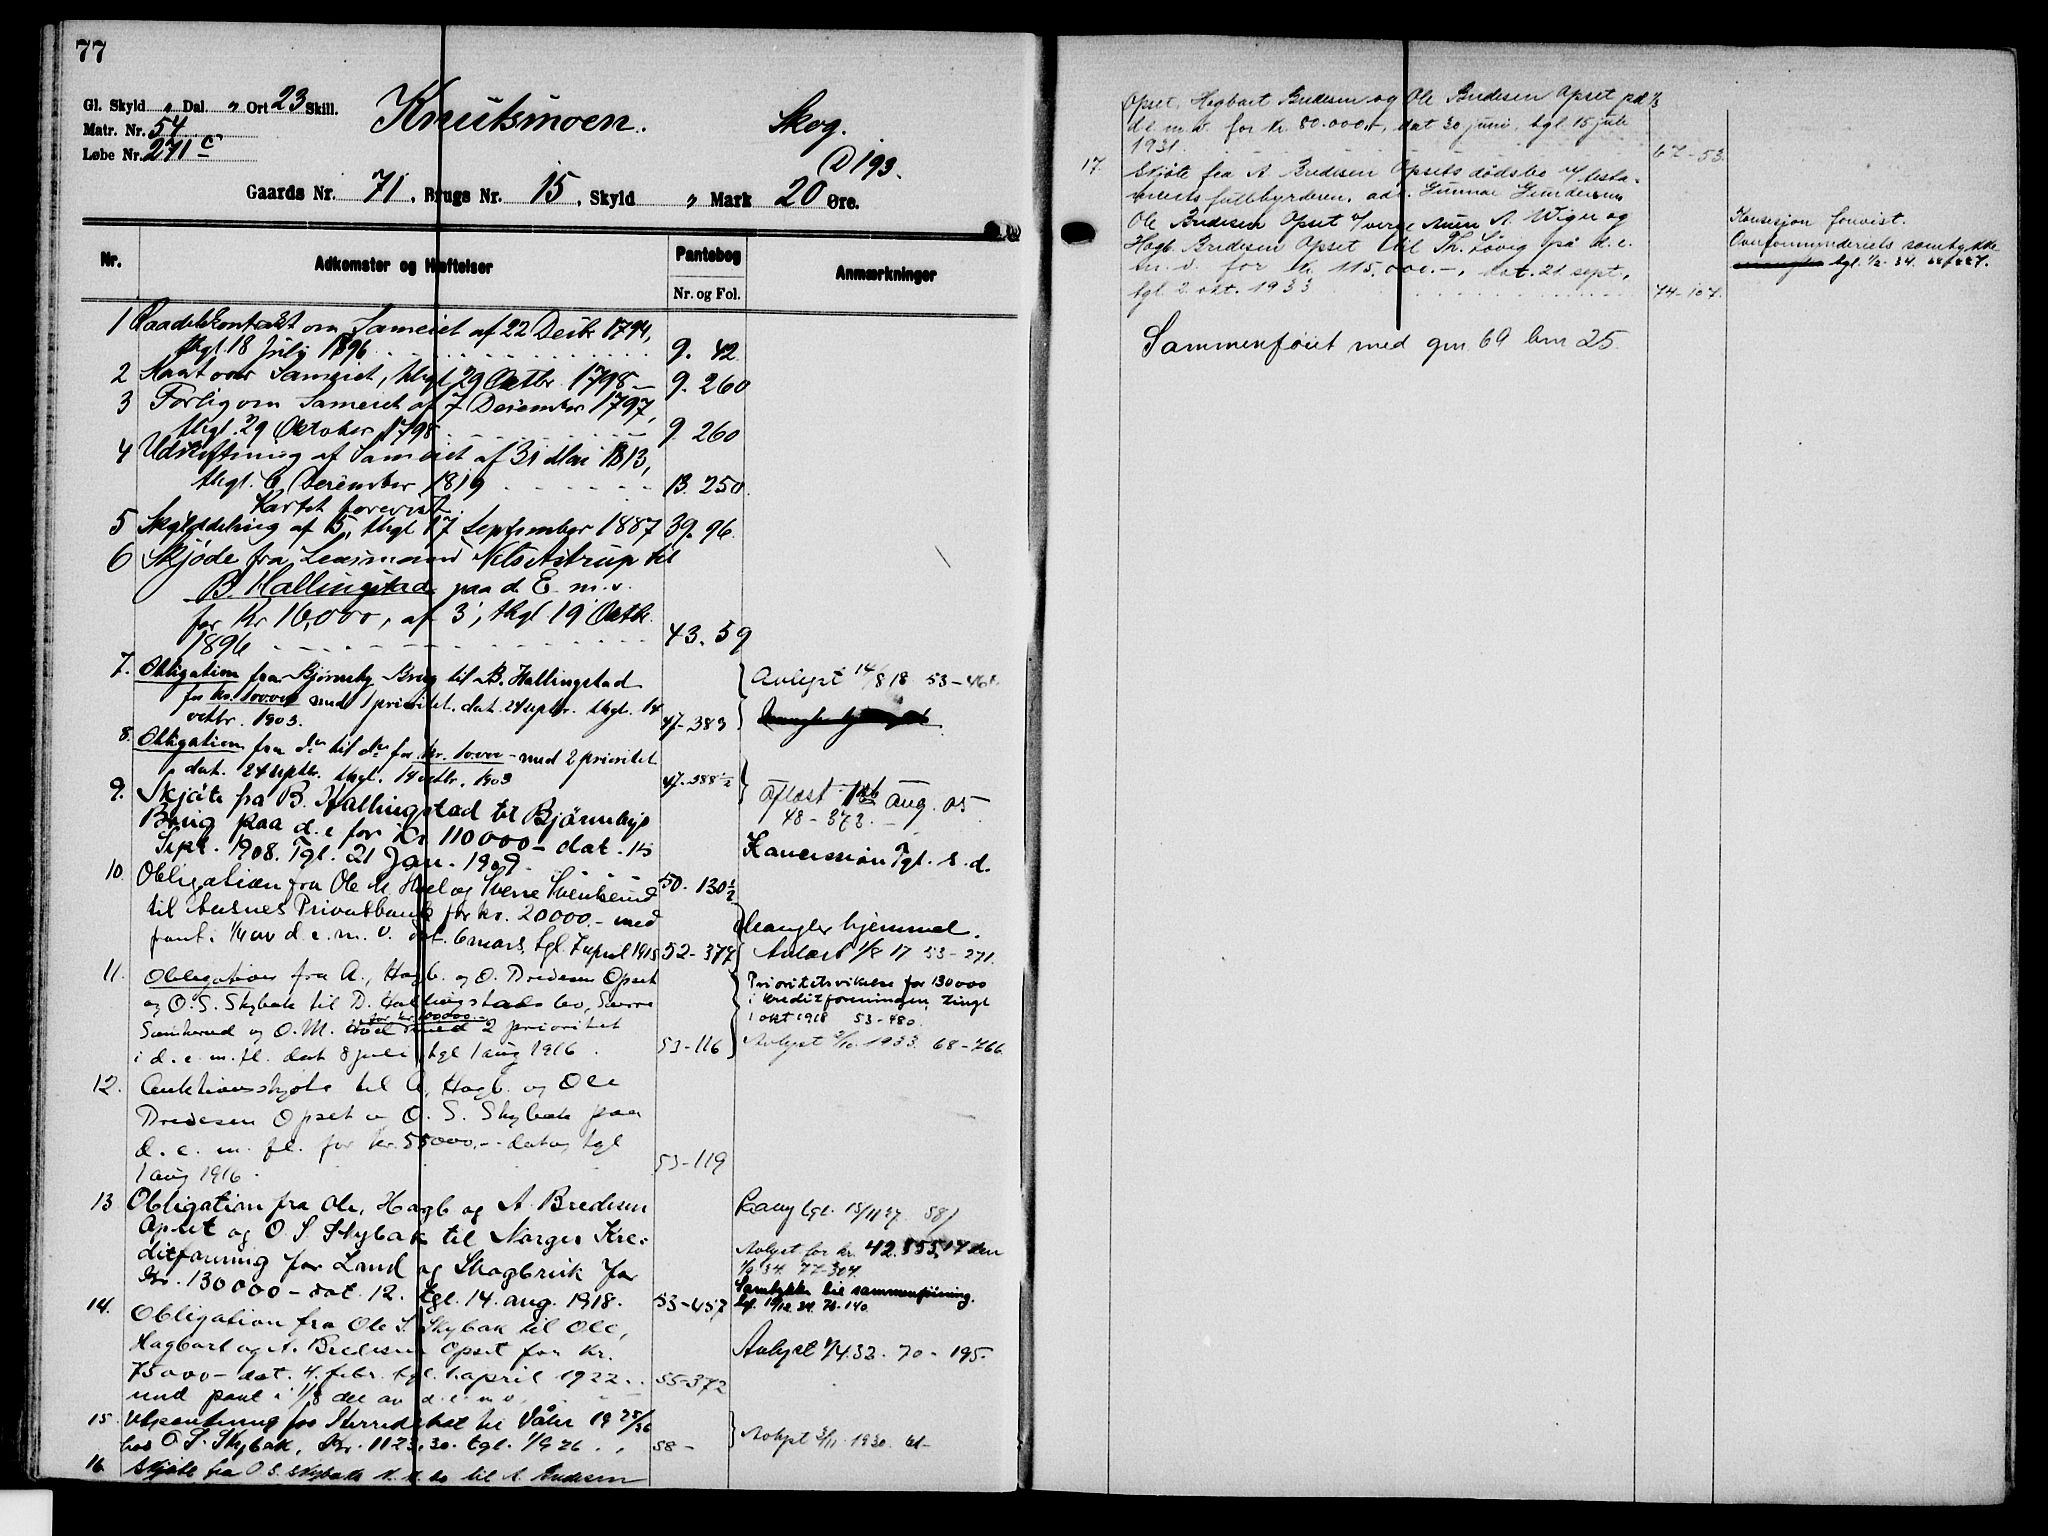 77
Gl. Skyld „ Dal. „ Ort 23 Skill.
Matr. Nr. 54
Løbe Nr. 271 c
Knutsmoen. Skog.
D 193.
Gaards Nr. 71, Brugs Nr. 15, Skyld „ Mark 20 Øre.
Nr. Adkomster og Hæftelser Pantebog Anmærkninger
Nr. og Fol.
1 Raadekontrakt om Sameiet af 22 Decbr 1794,
thgl. 18 July 1796 9. 42
2 over Sameiet, thgl 29 Octbr. 1798 9. 260
3 Forlig om Sameiet af 7 December 1797,
thgl. 29 Oktober 1798 9. 260
4 Udskiftning af Sameiet af 31 Mai 1813,
thgl. 6 December 1819 13. 250
Kartet forevist.
5 Skylddeling af 15, thgl 17 September 1887 39. 96
6 Skjøde fra Lensmand Nils Astrup til
B. Hallingstad paa d. E. m. v.
for Kr 16,000, af 3, thgl 19 Octbr.
1896 43. 59
7. Obligation fra Bjørneby Brug til B. Hallingstad
for kr. 100000 med 1 prioritet. dat. 24 septbr. thgl. 14
octbr. 1903. 47-383
Avlyst 14/8 18 53-461
8. Obligation fra do til do for kr. 10000 - med 2 prioritet
dat. 24 septbr. thgl. 14 octbr. 1903 47-388 1/2
Aflæst Aug. 05
48-373.
9. Skjøte fra B. Hallingstad til Bjørneby
Brug paa d. e for Kr 110000 - dat. 15
Sept. 1908. Tgl. 21 Jan. 1909. 50-130 1/2
Koncession Tgl. s. d.
10. Obligation fra Ole M. Hoel og Sverre Svenkerud
til Aasnes Privatbank for kr. 20000.- med
pant i 1/4 av d. e. m. v. dat. 6 mars, tgl. 7 april 1915 52-377
Mangler hjemmel.
Avlæst 1/8 17 53-271.
11. Obligation fra A., Hagb. og O. Bredesen Opset
og O. S. Skybak til B. Hallingstads bo, Sverre
Svenkerud og O. M. Hoel med 2 prioritet
for kr. 100000.-
i d. e. m. fl. dat 8 juli, tgl 1 aug 1916. 53-116
Prioritetsvikelse for 130000
i kreditforeningen, tingl
1 okt 1918 53-480.
Avlyst 2/10. 1933. 68-766.
12. Auktionsskjøte til A., Hagb. og Ole
Bredesen Opset og O. S. Skybak paa
d. e. m. fl. for kr. 55000.- dato, tgl
1 aug 1916. 53-119
13 Obligation fra Ole, Hagb og A Bredesen
Opset og O. S. Skybak til Norges Kre-
ditforening for Land og Skogbruk for
Kr. 130000 - dat. 12. tgl. 14. aug. 1918. 53-457
tgl. 15/11 27. 58/
Avlyst for kr. 42.555,17 den
34. 77-304.
Samtykke til sammenføining.
tgl. 19/12 34. 76-140
14. Obligation fra Ole S. Skybak til Ole,
Hagbart og A. Bredesen Opset for kr.
75000 - dat. 4. febr. tgl. 1. april 1922. 55-372
med pant i 1/8 del av d. e. m. v.
Avlyst 1/4.32. 70-195.
15. Utpantning for Herredskas i Våler 1925/26
hos O. S. Skybak, Kr. 1123,30. tgl. 1/9 26. 58-
Avlyst 3/11 1930. 61-
16 Skjøte fra O S. Skybak til A. Bredesen
Opset, Hagbart Bredesen og Ole Bredesen Opset på 1/3
del m. v. for kr. 80.000,-, dat 30 juni, tgl. 15 juli
1931. 67-53.
17 Skjøte fra A Bredesen Opsets dødsbo v/ testa-
ments fullbyrderen, adv. Gunnar Gundersen
Ole Bredesen Opset v/verge Auen A. Wiger og
Hagb. Bredesen Opset til Th. Løvig på d. e.
m. v. for kr. 115,000.-, dat. 21 sept,
tgl. 2 okt. 1933. 74-107.
Konsesjon forevist.
Overformynderiets samtykke
tgl. 1/2. 34.
Sammenføiet med gnr 69 bnr 25.